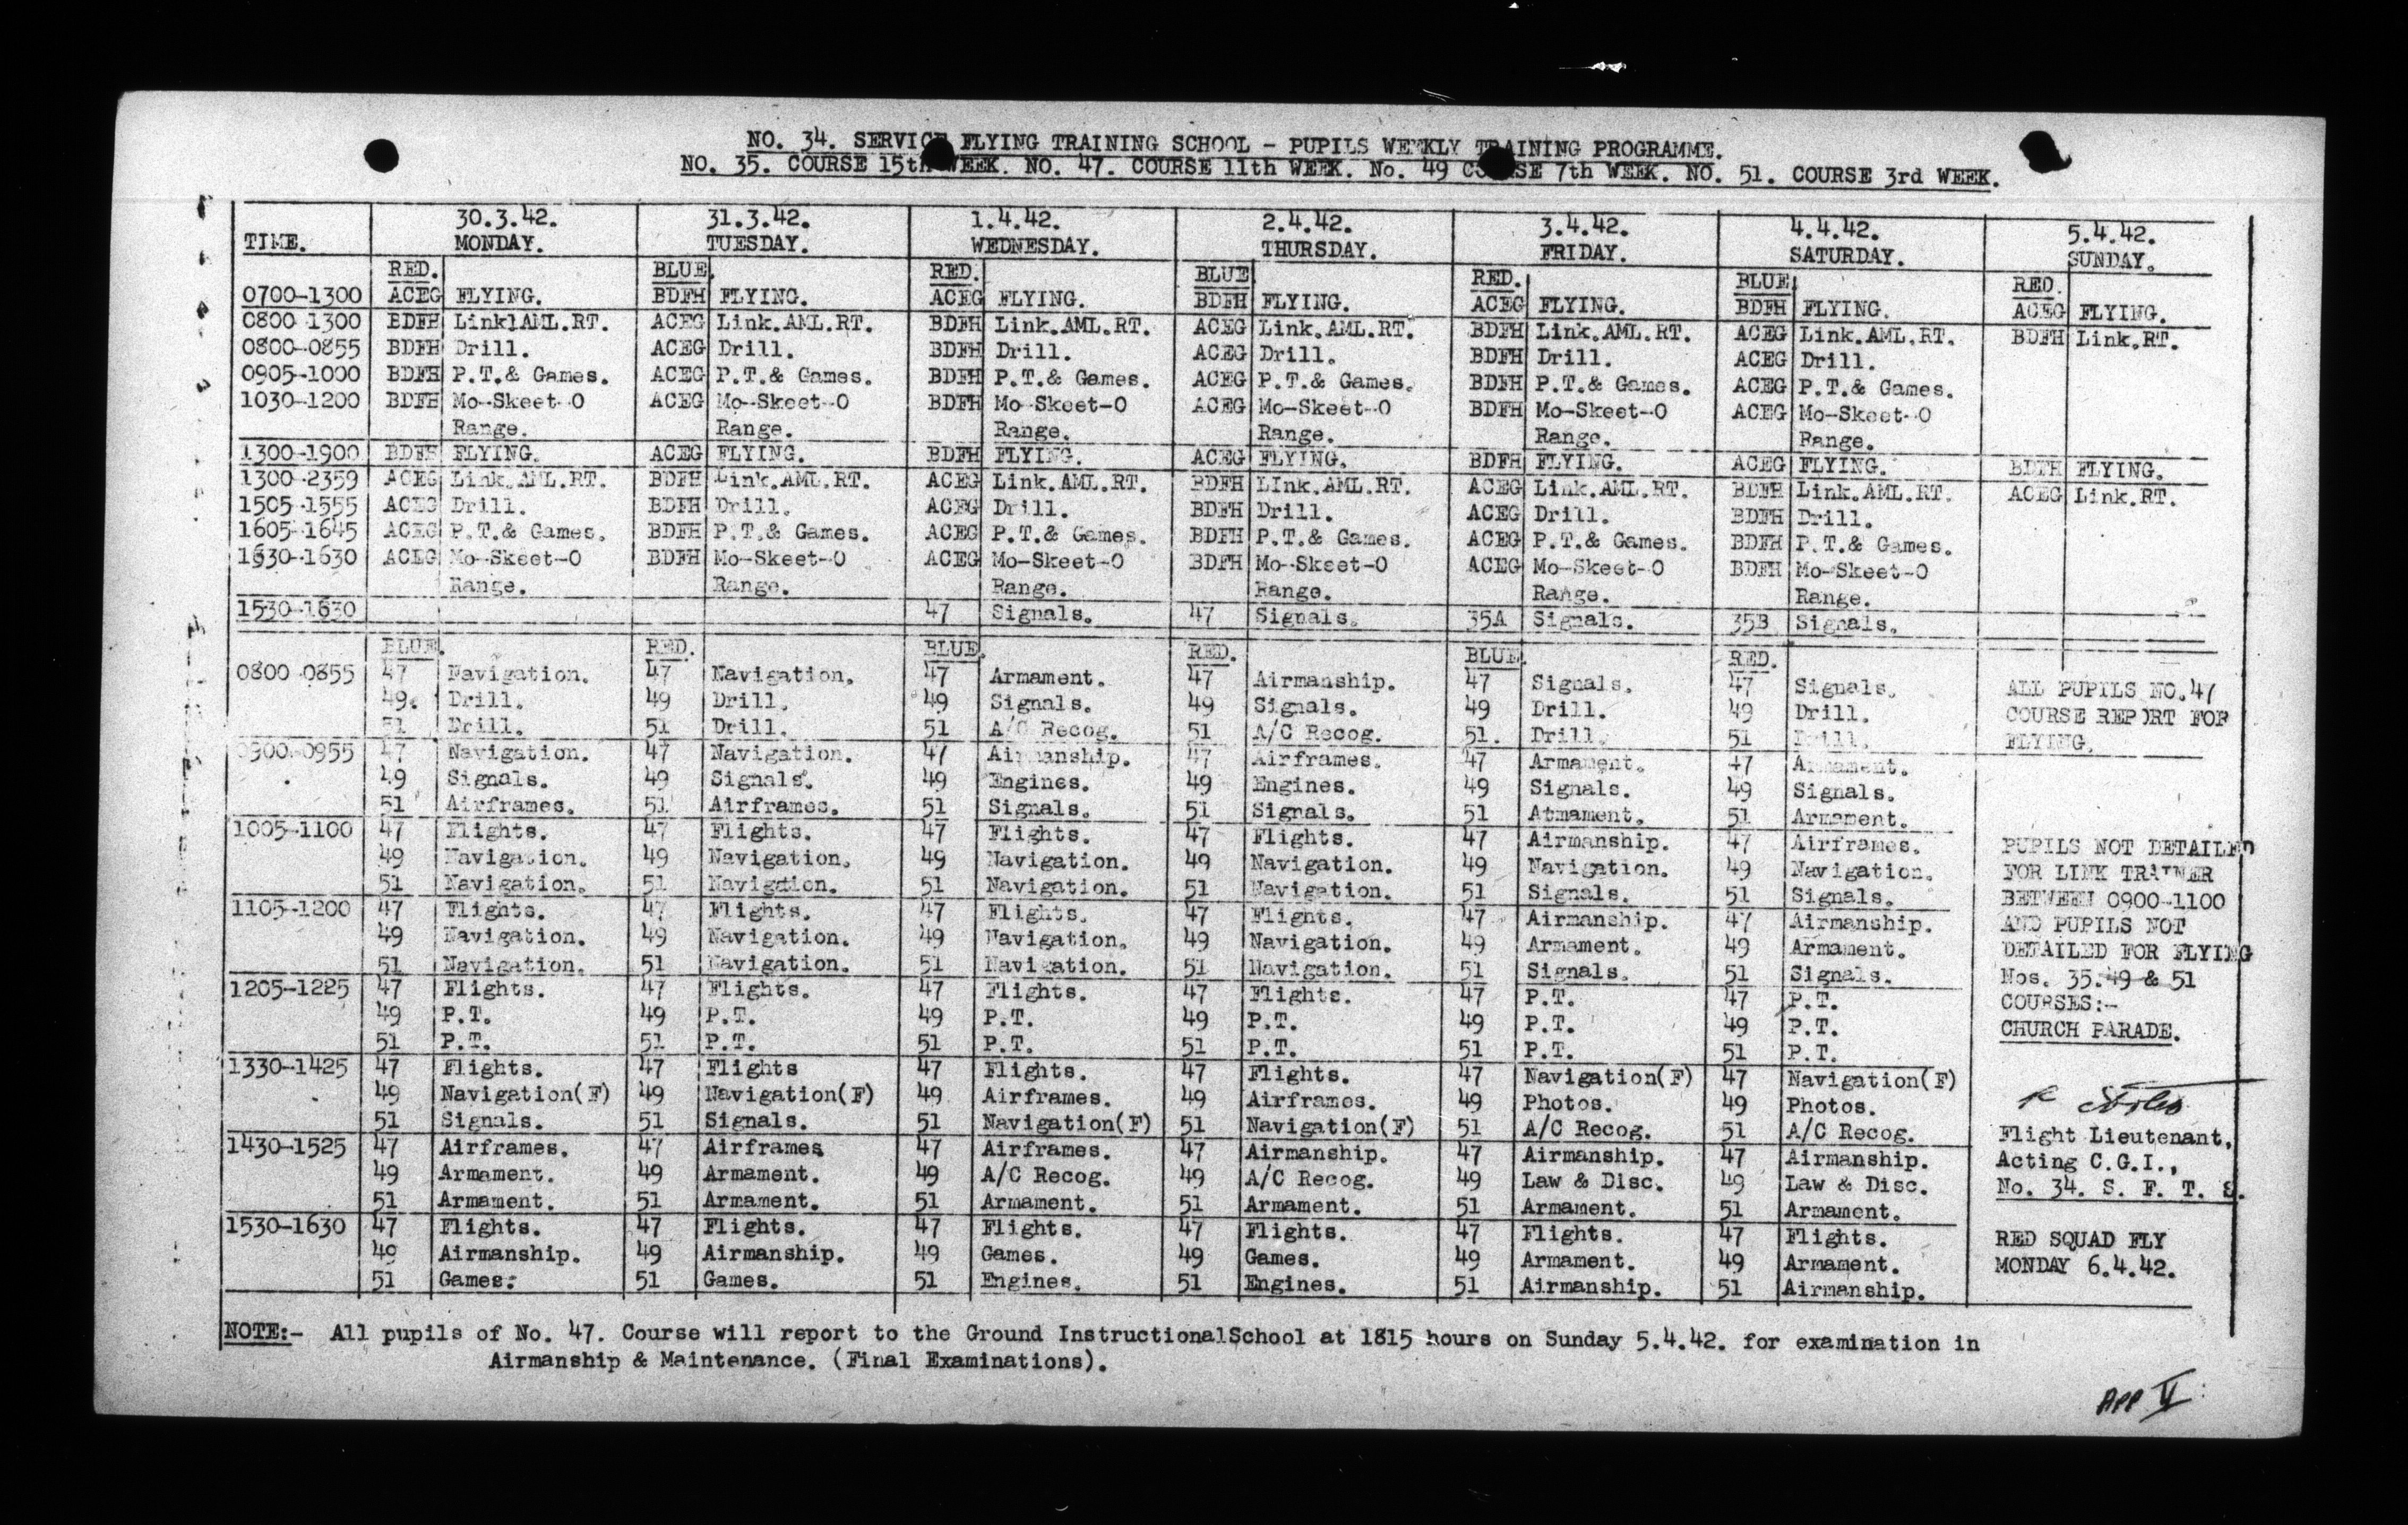 NO. 34. SERVICE FLYING TRAINING SCHOOL - PUPILS WEEKLY TRAINING PROGRAMME.
NO. 35. COURSE 15th WEEK. NO. 47. COURSE 11th WEEK. No. 49 COURSE 7th WEEK. NO. 51. COURSE 3rd WEEK.
30.3.42. 31.3.42. 1.4.42. 2.4.42. 3.4.42. 4.4.42. 5.4.42.
TIME. MONDAY. TUESDAY. WEDNESDAY. THURSDAY. FRIDAY. SATURDAY. SUNDAY.
RED. BLUE. RED. BLUE RED. BLUE RED.
0700-1300 ACEG FLYING. BDFH FLYING. ACEG FLYING. BDFH FLYING. ACEG FLYING. BDFH FLYING. ACEG FLYING.
0800-1300 BDFH Link1AML.RT. ACEG Link.AML.RT. BDFH Link.AML.RT. ACEG Link.AML.RT. BDFH Link.AML.RT. ACEG Link.AML.RT. BDFH Link.RT.
0800-0855 BDFH Drill. ACEG Drill. BDFH Drill. ACEG Drill. BDFH Drill. ACEG Drill.
0905-1000 BDFH P.T.& Games. ACEG P.T.& Games. BDFH P.T.& Games. ACEG P.T.& Games. BDFH P.T.& Games. ACEG P.T.& Games.
1030-1200 BDFH Mo-Skeet-O ACEG Mo-Skeet-O BDFH Mo-Skeet-O ACEG Mo-Skeet-O BDFH Mo-Skeet-O ACEG Mo-Skeet-O
Range. Range. Range. Range. Range. Range.
1300-1900 BDFH FLYING. ACEG FLYING. BDFH FLYING. ACEG FLYING. BDFH FLYING. ACEG FLYING. BDFH FLYING.
1300-2359 ACEG Link.AML.RT. BDFH Link.AML.RT. ACEG Link.AML.RT. BDFH LInk.AML.RT. ACEG Link.AML.RT. BDFH Link.AML.RT. ACEG Link.RT.
1505-1555 ACEG Drill. BDFH Drill. ACEG Drill. BDFH Drill. ACEG Drill. BDFH Drill.
1605-1645 ACEG P.T.& Games. BDFH P.T.& Games. ACEG P.T.& Games. BDFH P.T.& Games. ACEG P.T.& Games. BDFH P.T.& Games.
1630-1630 ACEG Mo-Skeet-O BDFH Mo-Skeet-O ACEG Mo-Skeet-O BDFH Mo-Skeet-O ACEG Mo-Skeet-O BDFH Mo-Skeet-O
Range. Range. Range. Range. Range. Range.
1530-1630 47 Signals. 47 Signals. 35A Signals. 35B Signals.
BLUE. RED. BLUE. RED. BLUE. RED.
0800-0855 47 Navigation. 47 Navigation. 47 Armament. 47 Airmanship. 47 Signals. 47 Signals.
49. Drill. 49 Drill. 49 Signals. 49 Signals. 49 Drill. 49 Drill.
51 Drill. 51 Drill. 51 A/C Recog. 51 A/C Recog. 51. Drill. 51 Drill.
0900-0955 47 Navigation. 47 Navigation. 47 Airmanship. 47 Airframes. 47 Armament. 47 Armament.
49 Signals. 49 Signals. 49 Engines. 49 Engines. 49 Signals. 49 Signals.
51 Airframes. 51 Airframes. 51 Signals. 51 Signals. 51 Atmament. 51 Armament.
1005-1100 47 Flights. 47 Flights. 47 Flights. 47 Flights. 47 Airmanship. 47 Airframes.
49 Navigation. 49 Navigation. 49 Navigation. 49 Navigation. 49 Navigation. 49 Navigation.
51 Navigation. 51 Navigation. 51 Navigation. 51 Navigation. 51 Signals. 51 Signals.
1105-1200 47 Flights. 47 Flights. 47 Flights. 47 Flights. 47 Airmanship. 47 Airmanship.
49 Navigation. 49 Navigation. 49 Navigation. 49 Navigation. 49 Armament. 49 Armament.
51 Navigation. 51 Navigation. 51 Navigation. 51 Navigation. 51 Signals. 51 Signals.
1205-1225 47 Flights. 47 Flights. 47 Flights. 47 Flights. 47 P.T. 47 P.T.
49 P.T. 49 P.T. 49 P.T. 49 P.T. 49 P.T. 49 P.T.
51 P.T. 51 P.T. 51 P.T. 51 P.T. 51 P.T. 51 P.T.
1330-1425 47 Flights. 47 Flights 47 Flights. 47 Flights. 47 Navigation(F) 47 Navigation(F)
49 Navigation(F) 49 Navigation(F) 49 Airframes. 49 Airframes. 49 Photos. 49 Photos.
51 Signals. 51 Signals. 51 Navigation(F) 51 Navigation(F) 51 A/C Recog. 51 A/C Recog.
1430-1525 47 Airframes. 47 Airframes 47 Airframes. 47 Airmanship. 47 Airmanship. 47 Airmanship.
49 Armament. 49 Armament. 49 A/C Recog. 49 A/C Recog. 49 Law & Disc. 49 Law & Disc.
51 Armament. 51 Armament. 51 Armament. 51 Armament. 51 Armament. 51 Armament.
1530-1630 47 Flights. 47 Flights. 47 Flights. 47 Flights. 47 Flights. 47 Flights.
49 Airmanship. 49 Airmanship. 49 Games. 49 Games. 49 Armament. 49 Armament.
51 Games. 51 Games. 51 Engines. 51 Engines. 51 Airmanship. 51 Airmanship.
ALL PUPILS NO.47
COURSE REPORT FOR
FLYING.
PUPILS NOT DETAILED
FOR LINK TRAINER
BETWEEN 0900-1100
AND PUPILS NOT
DETAILED FOR FLYING
Nos. 35.49 & 51
COURSES:-
CHURCH PARADE.
Flight Lieutenant,
Acting C.G.I.,
No. 34. S. F. T. S.
RED SQUAD FLY
MONDAY 6.4.42.
NOTE:- All pupils of No. 47. Course will report to the Ground InstructionalSchool at 1815 hours on Sunday 5.4.42. for examination in
Airmanship & Maintenance. (Final Examinations).
APP V